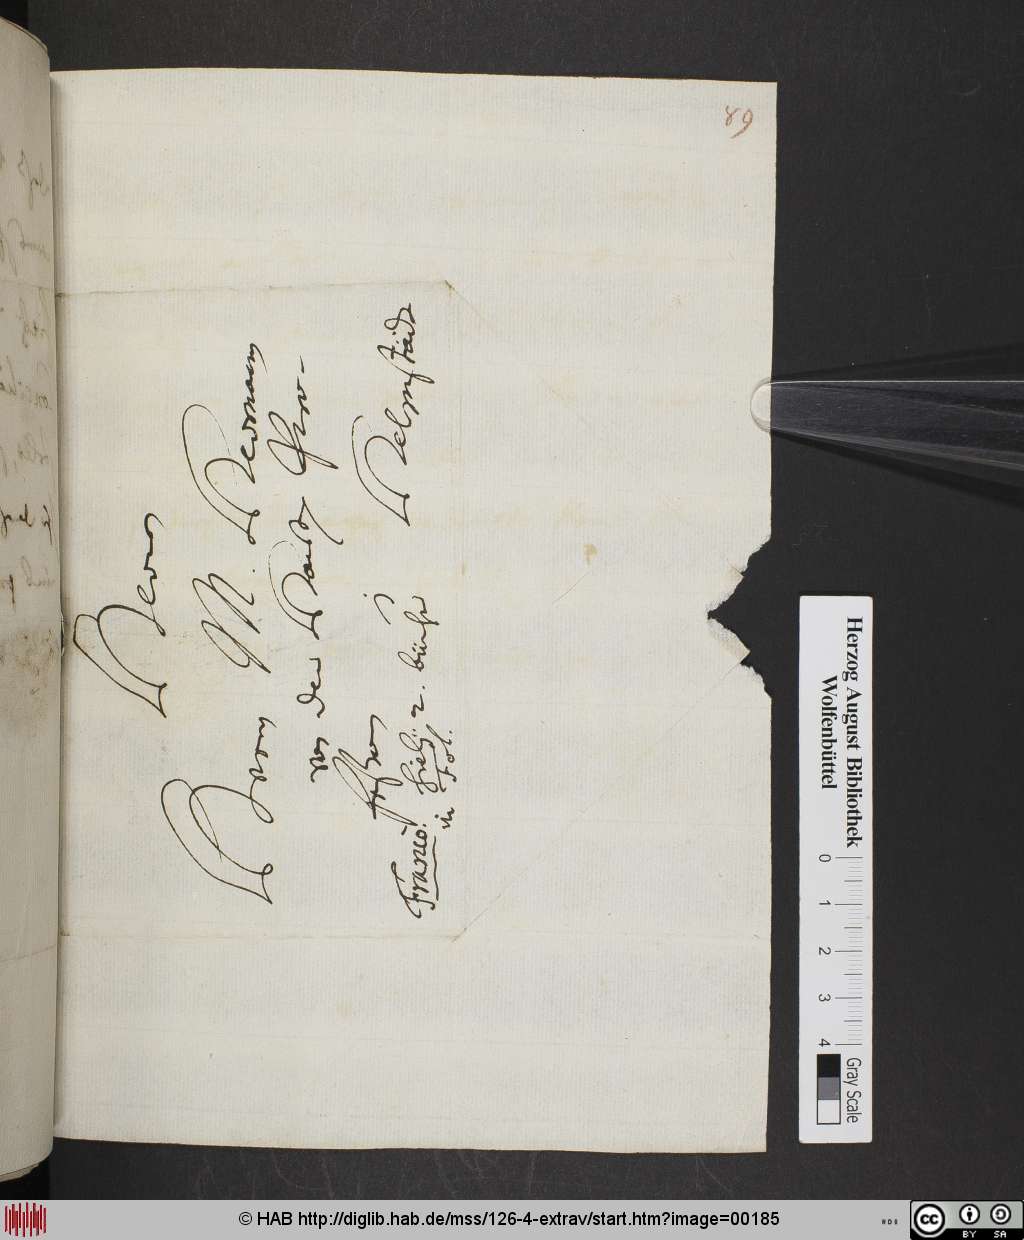 89
Herrn
Herrn M. Hermann
von der Hardt
Helmstädt
Franco. hiebej 2. bücher
in Fol.
Herzog August Bibliothek
Wolfenbüttel
0 1 2 3 4
Gray Scale
© HAB http://diglib.hab.de/mss/126-4-extrav/start.htm?image=00185
cc BY SA